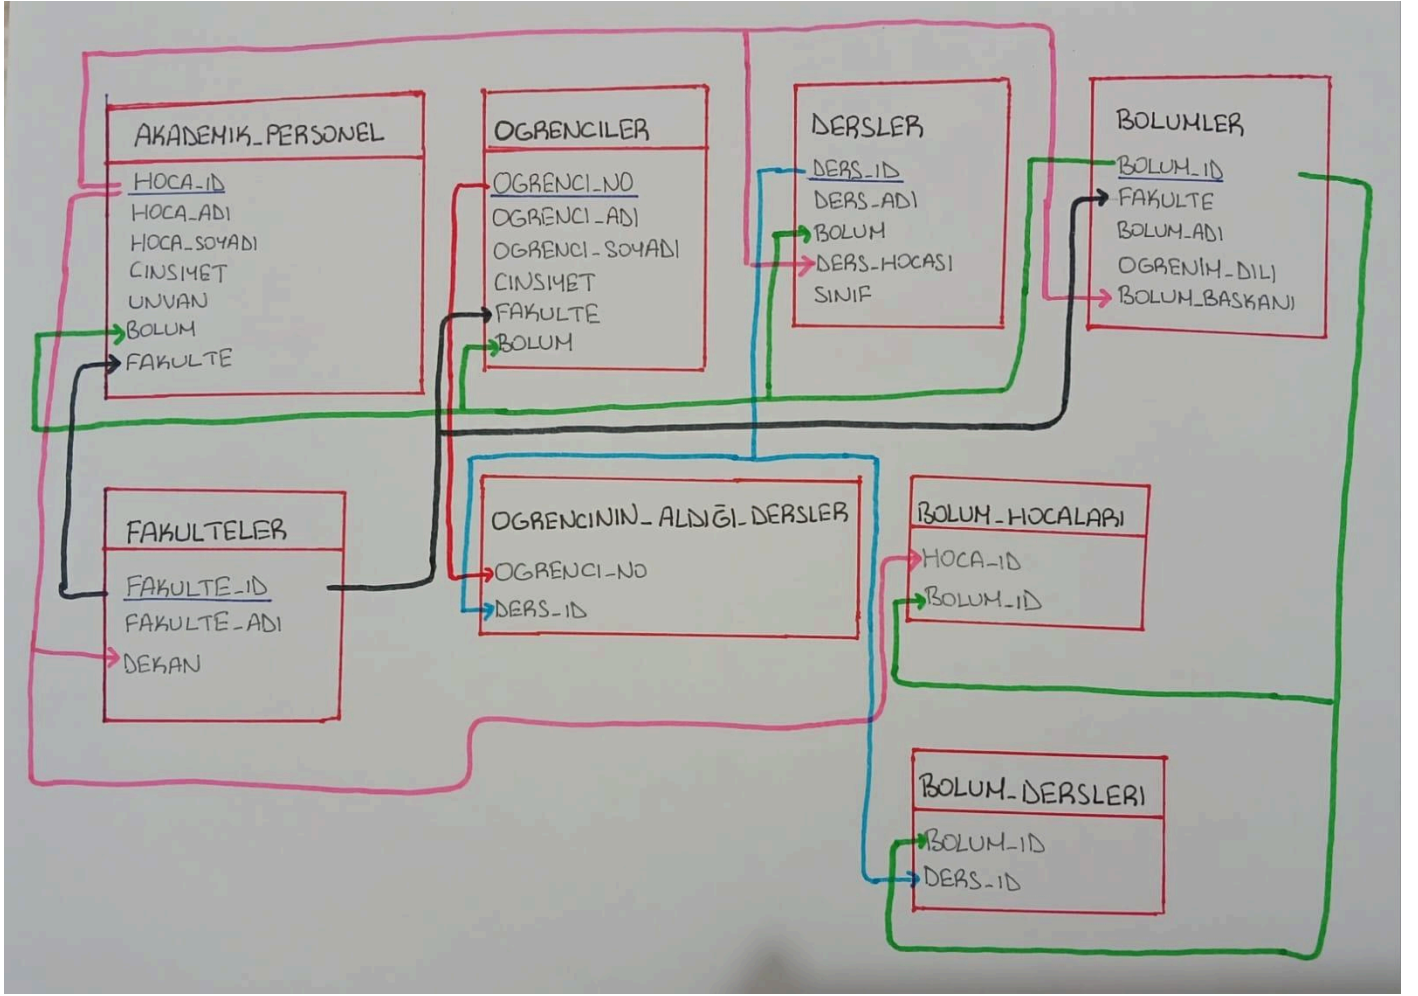 AKADEMIK_PERSONEL
HOCA_ID
HOCA_ADI
HOCA_SOYADI
CINSIYET
UNVAN
BOLUM
FAKULTE
OGRENCILER
OGRENCI_NO
OGRENCI_ADI
OGRENCI_SOYADI
CINSIYET
FAKULTE
BOLUM
DERSLER
DERS_ID
DERS_ADI
BOLUM
DERS_HOCASI
SINIF
BOLUMLER
BOLUM_ID
FAKULTE
BOLUM_ADI
OGRENİM_DILI
BOLUM_BASKANI
FAKULTELER
FAKULTE_ID
FAKULTE_ADI
DEKAN
OGRENCININ_ALDIĞI_DERSLER
OGRENCI_NO
DERS_ID
BOLUM_HOCALARI
HOCA_ID
BOLUM_ID
BOLUM_DERSLERI
BOLUM_ID
DERS_ID